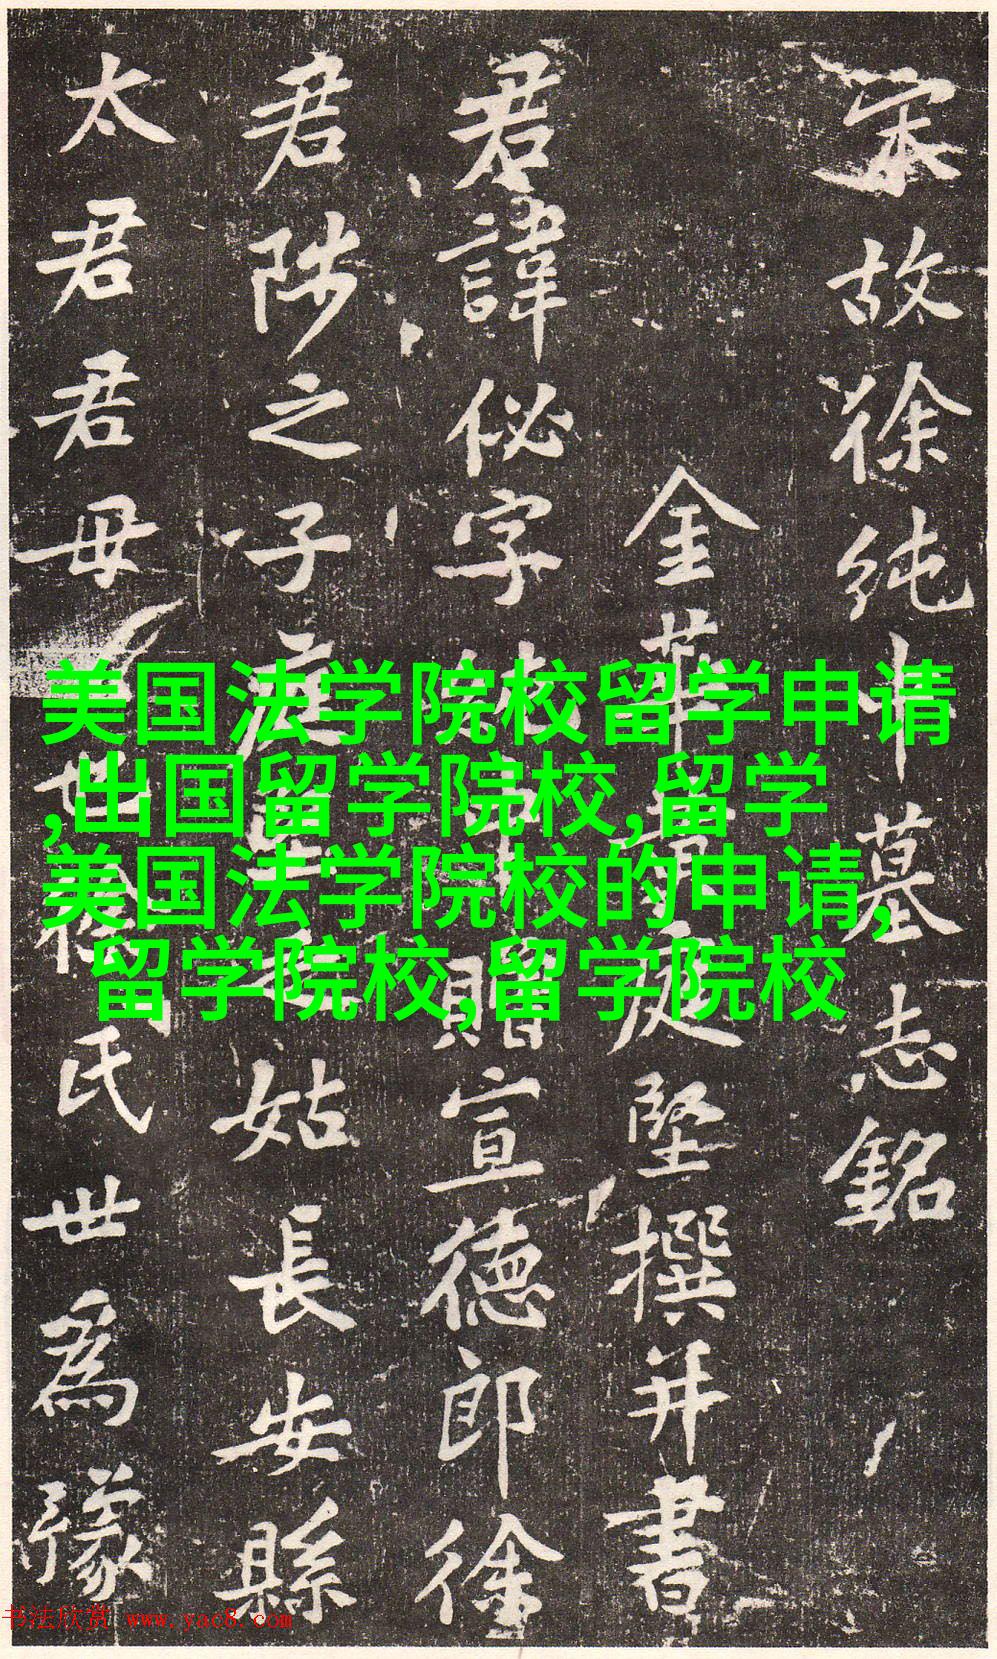 宋故徐純中墓志銘
金華黄庭堅撰并書
君諱佖字純中贈宣德郎徐
君陟之子庭堅之姑長安縣
太君君母世氏世為豫
美国法学院校留学申请
,出国留学院校,留学
美国法学院校的申请,
留学院校,留学院校
书法欣赏 www.yac8.com